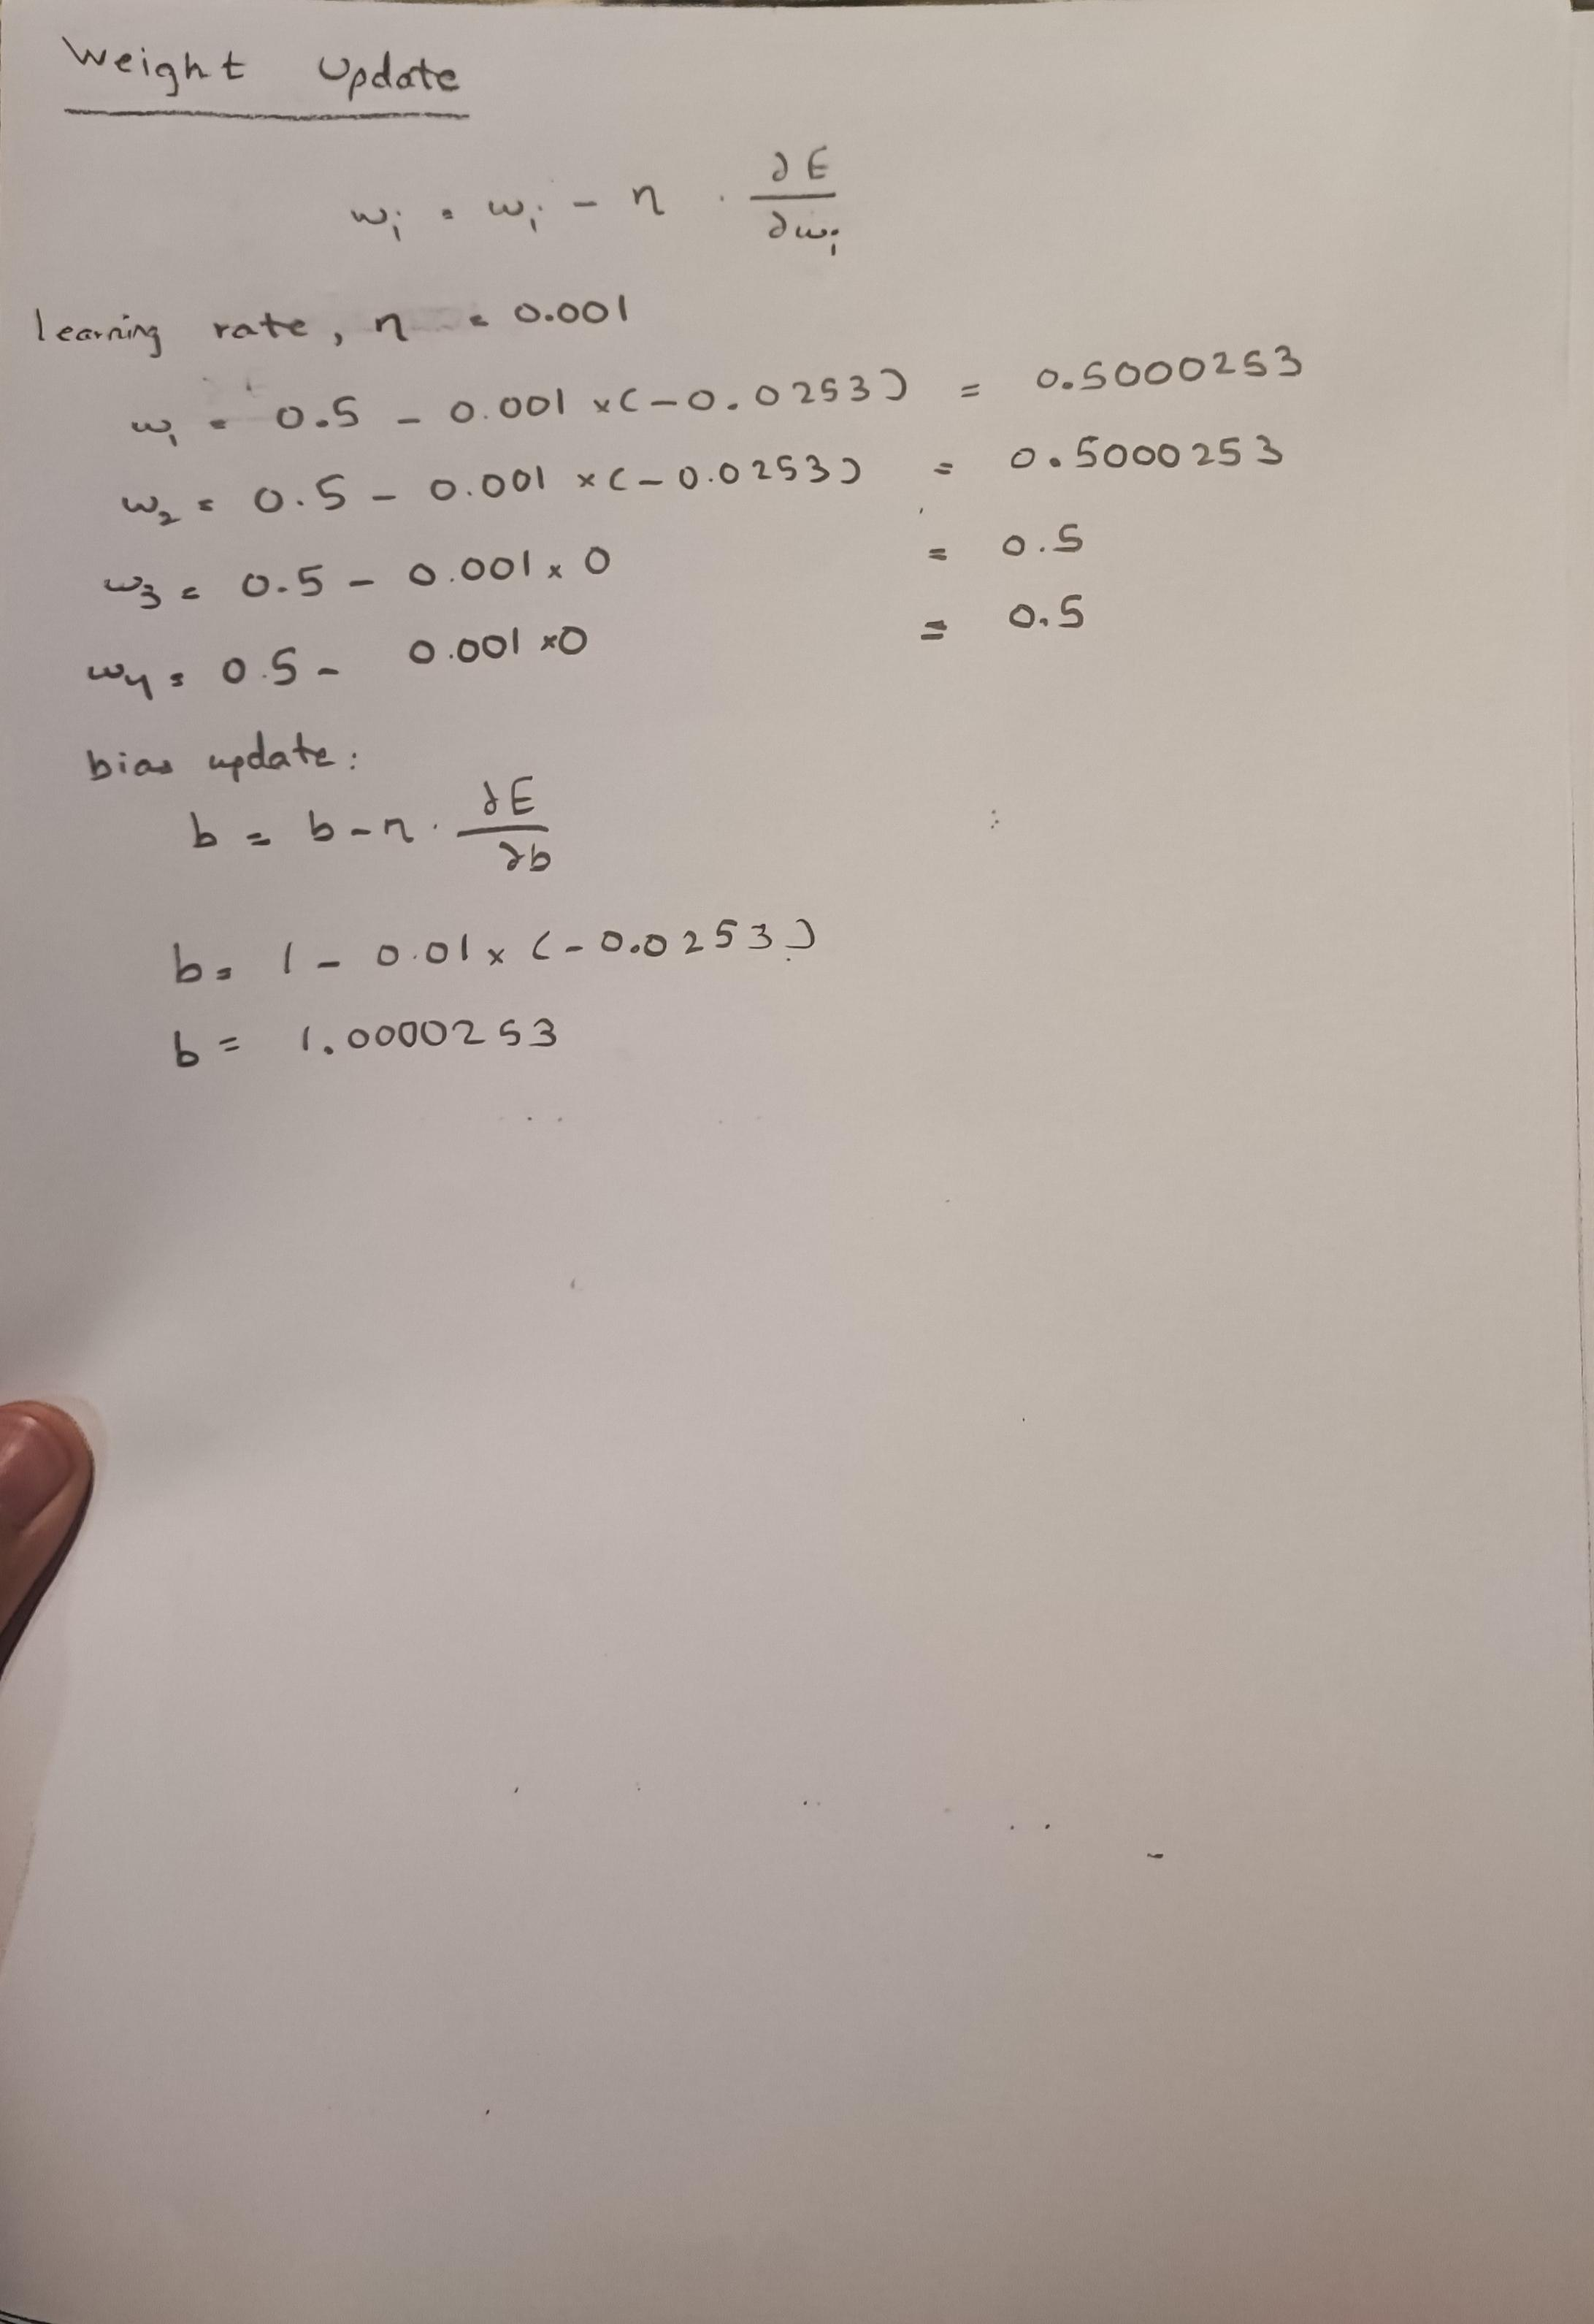 Weight Update
wi = wi - η . ∂E/∂wi
learning rate, η = 0.001
w1 = 0.5 - 0.001 x (-0.0253) = 0.5000253
w2 = 0.5 - 0.001 x (-0.0253) = 0.5000253
w3 = 0.5 - 0.001 x 0 = 0.5
w4 = 0.5 - 0.001 x 0 = 0.5
bias update:
b = b - η . ∂E/∂b
b = 1 - 0.01 x (-0.0253)
b = 1.0000253